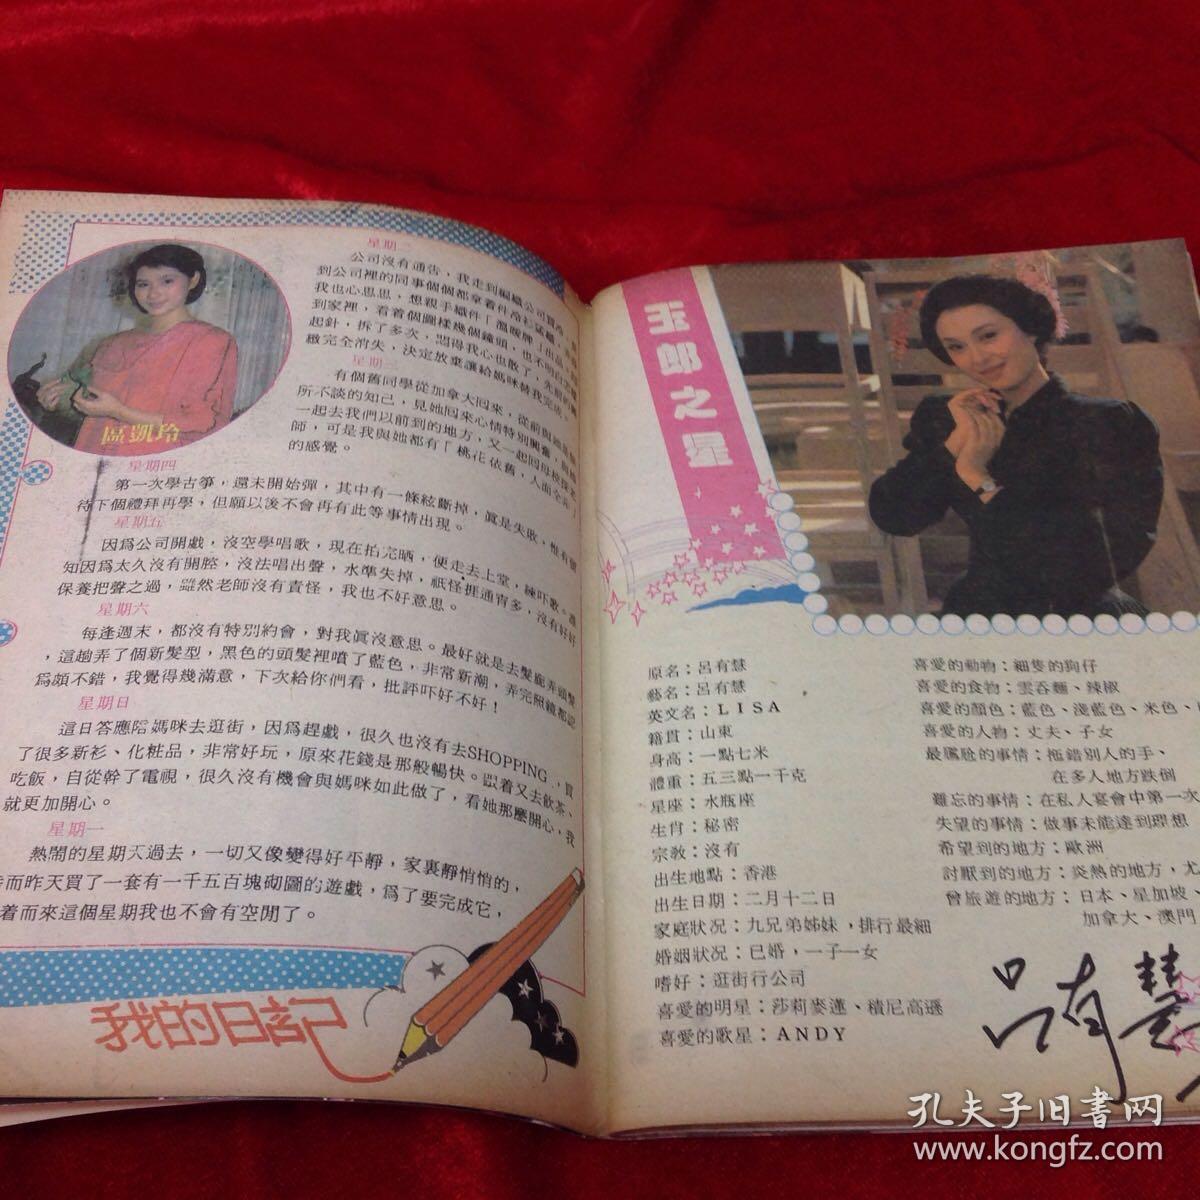 星期二
公司沒有通告,我走到編織公司買冷,
到公司裡的同事個個都拿着件冷衫猛織,
我也心思思,想親手織件「溫暖牌」出品,
到家裡,看着個圖樣幾個鐘頭,也不明白
起針,拆了多次,悶得我心也散了,先前的
緻完全消失,決定放棄讓給媽咪替我完成。
星期三
有個舊同學從加拿大囘來,從前與她是無
所不談的知己,見她囘來心情特別興奮,與她
一起去我們以前到的地方,又一起囘母校探老
師,可是我與她都有「桃花依舊,人面全非」
的感覺。
區凱玲
星期四
第一次學古箏,還未開始彈,其中有一條絃斷掉,眞是失敗,惟有留
待下個禮拜再學,但願以後不會再有此等事情出現。
星期五
因爲公司開戲,沒空學唱歌,現在拍完晒,便走去上堂,練吓歌。誰
知因爲太久沒有開腔,沒法唱出聲,水準失掉,祇怪捱通宵多,沒有好好
保養把聲之過,雖然老師沒有責怪,我也不好意思。
星期六
每逢週末,都沒有特別約會,對我眞沒意思。最好就是去髮廊弄頭髮
,這趟弄了個新髮型,黑色的頭髮裡噴了藍色,非常新潮,弄完照鏡都認
爲頗不錯,我覺得幾滿意,下次給你們看,批評吓好不好!
星期日
這日答應陪媽咪去逛街,因爲趕戲,很久也沒有去SHOPPING,買
了很多新衫、化粧品,非常好玩,原來花錢是那般暢快。跟着又去飲茶、
吃飯,自從幹了電視,很久沒有機會與媽咪如此做了,看她那麼開心,我
就更加開心。
星期一
熱鬧的星期天過去,一切又像變得好平靜,家裏靜悄悄的,
而昨天買了一套有一千五百塊砌圖的遊戲,爲了要完成它,
着而來這個星期我也不會有空閒了。
我的日記
玉郎之星
原名:呂有慧
藝名:呂有慧
英文名:LISA
籍貫:山東
身高:一點七米
體重:五三點一千克
星座:水瓶座
生肖:秘密
宗教:沒有
出生地點:香港
出生日期:二月十二日
家庭狀况:九兄弟姊妹,排行最細
婚姻狀况:已婚,一子一女
嗜好:逛街行公司
喜愛的明星:莎莉麥蓮、積尼高遜
喜愛的歌星:ANDY
喜愛的動物:細隻的狗仔
喜愛的食物:雲吞麵、辣椒
喜愛的顏色:藍色、淺藍色、米色、
喜愛的人物:丈夫、子女
最尷尬的事情:拖錯別人的手、
在多人地方跌倒
難忘的事情:在私人宴會中第一次
失望的事情:做事未能達到理想
希望到的地方:歐洲
討厭到的地方:炎熱的地方,尤
曾旅遊的地方:日本、星加坡、
加拿大、澳門
呂有慧
孔夫子旧書网
www.kongfz.com